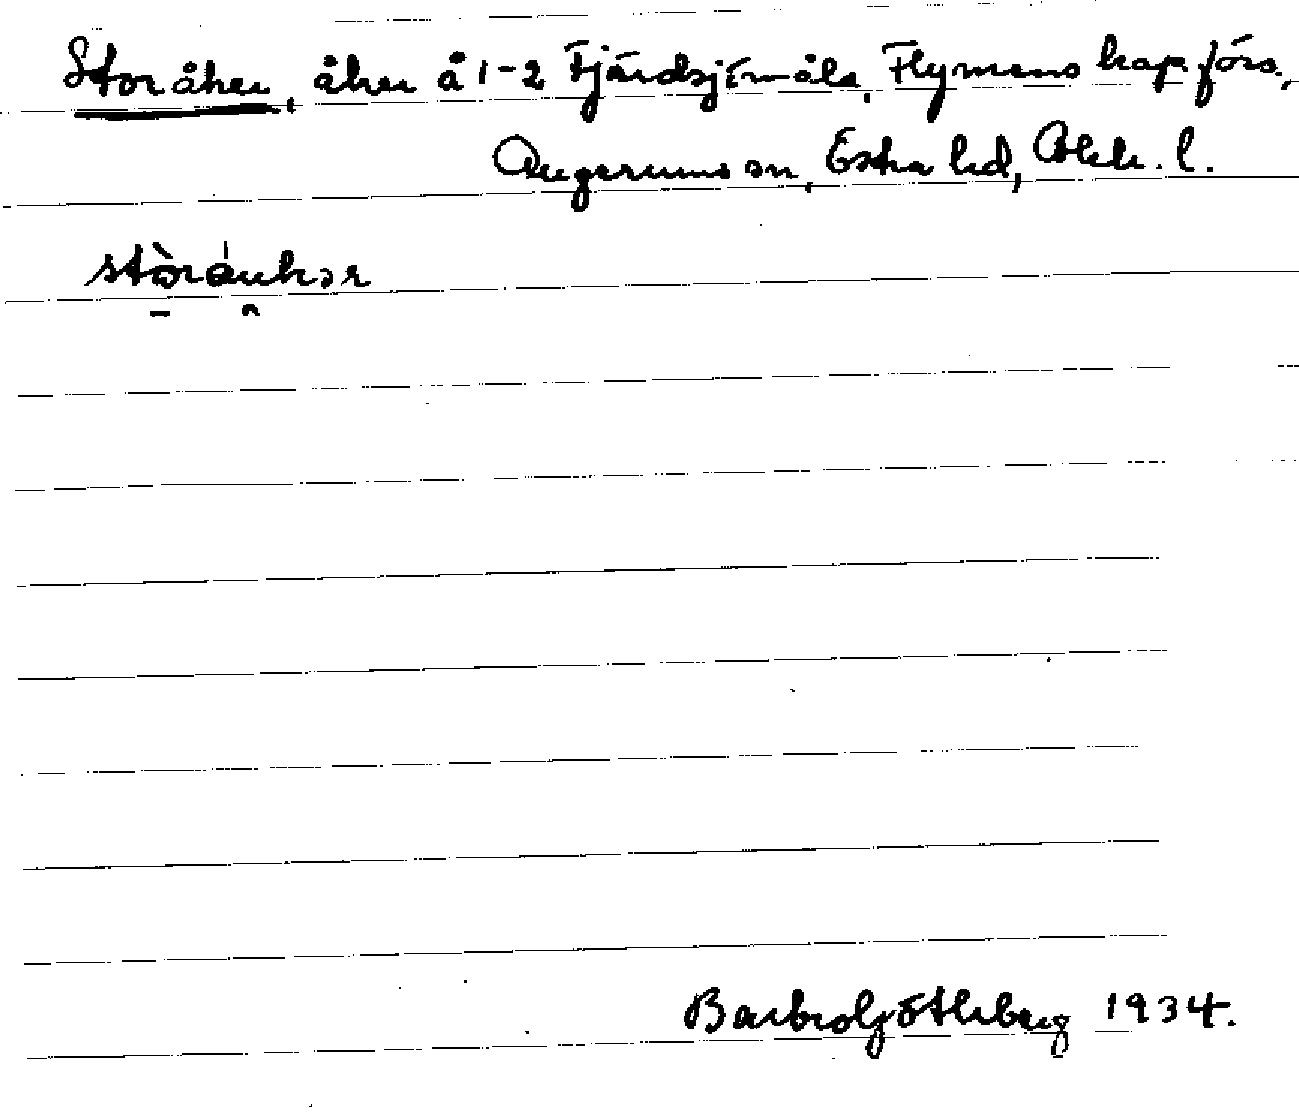 Storåker, åker å 1-2 Fjärdsjömåla, Flymens kap. förs.,
Augerums sn, Östra hd, Blek. l.
stòráukər
Barbro Götherberg 1934.